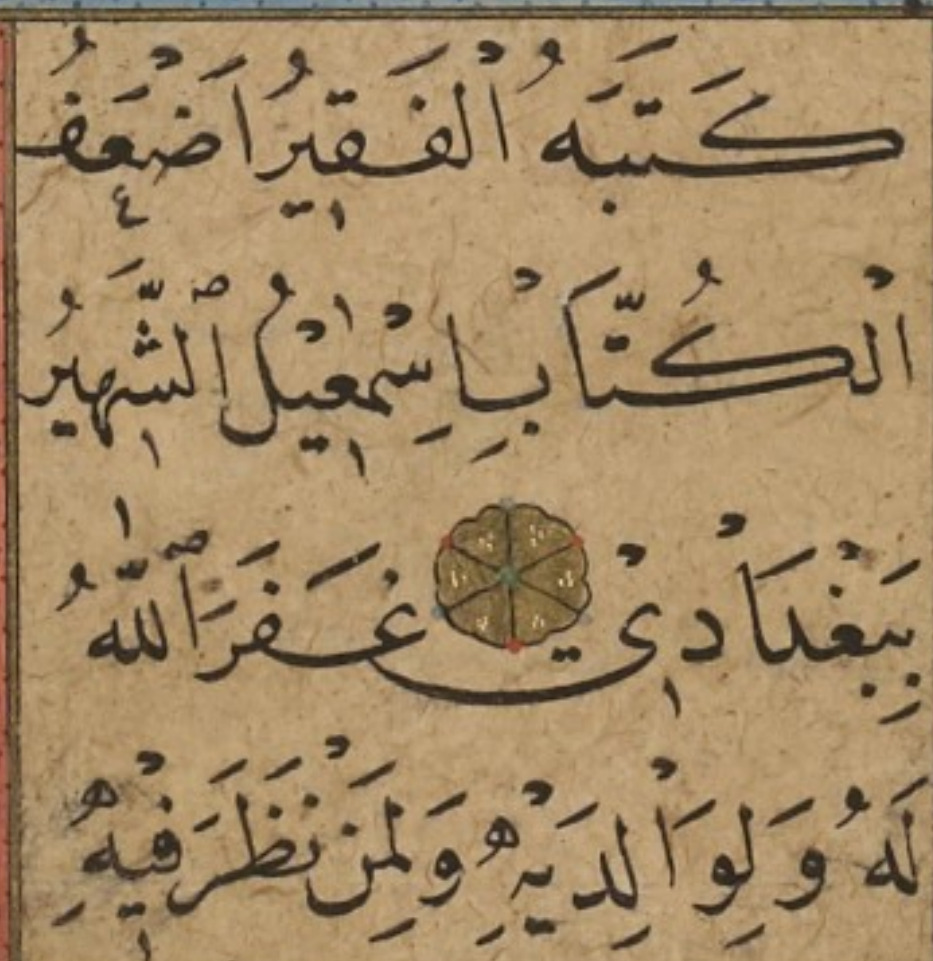 كَتَبَهُ الْفَقِيرُ اَضْعَفُ
الْكُتَّابْ بِاِسْمٰعِيْلُ الشَّهِيرُ
بِبَغْدَادِيْ غَفَرَ اللّٰهُ
لَهُ وَلِوَالِدَيْهِ وَلِمَنْ نَظَرَ فِيْهِ